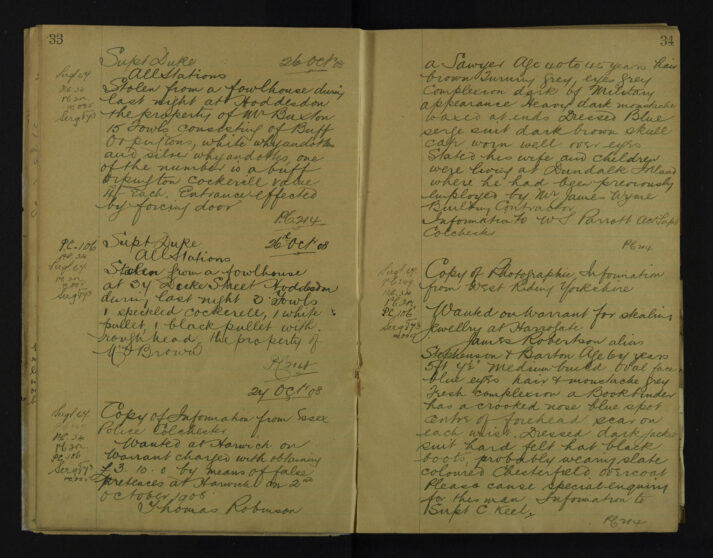 33
Supt Duke 26 Oct 08
All Stations
Stolen from a fowlhouse during
last night at Hoddesdon
the property of Mr Buxton
15 Fowls consisting of Buff
Orpingtons, white whyandottes
and silver whyandottes, one
of the number is a buff
orpington cockerill value
Each. Entrance effected
by forcing door
PC 214
PC 106
Supt Duke 26th Oct 08
All Stations
Stolen from a fowlhouse
at 34 Duke Street Hoddesdon
during last night 3 Fowls
1 speckled cockerell, 1 white
pullet, 1 black pullet with
rough head the property of
Mr Brown
27 Oct 08
Copy of Information from Essex
Police Colchester
Wanted at Harwich on
warrant charged with obtaining
£3.10.0 by means of false
pretences at Harwich on 2nd
October 1908
Thomas Robinson
34
a Sawyer Age 40 to 45 years hair
brown turning grey, eyes grey
Complexion dark of Military
appearance Heavy dark moustache
waxed at ends Dressed Blue
serge suit dark brown skull
cap worn well over eyes
Stated his wife and children
were living at Dundalk Ireland
where he had been previously
employed by Mr James Wynne
Building Contractor
Information to W S Parrott Act Supt
Colchester
PC 214
Copy of Photographic Information
from West Riding Yorkshire
Wanted on Warrant for stealing
Jewellry at Harrogate
James Robertson alias
Stephenson & Barton Age 64 years
5ft Medium build Oval face
blue eyes hair & moustache grey
Fresh complexion a Bookbinder
has a crooked nose blue spot
centre of forehead scar on
each wrist. Dressed dark jacket
suit hard felt hat black
boots probably wearing slate
coloured Chesterfield overcoat
Please cause special enquiry
for this man Information to
Supt C Keel.
PC 214